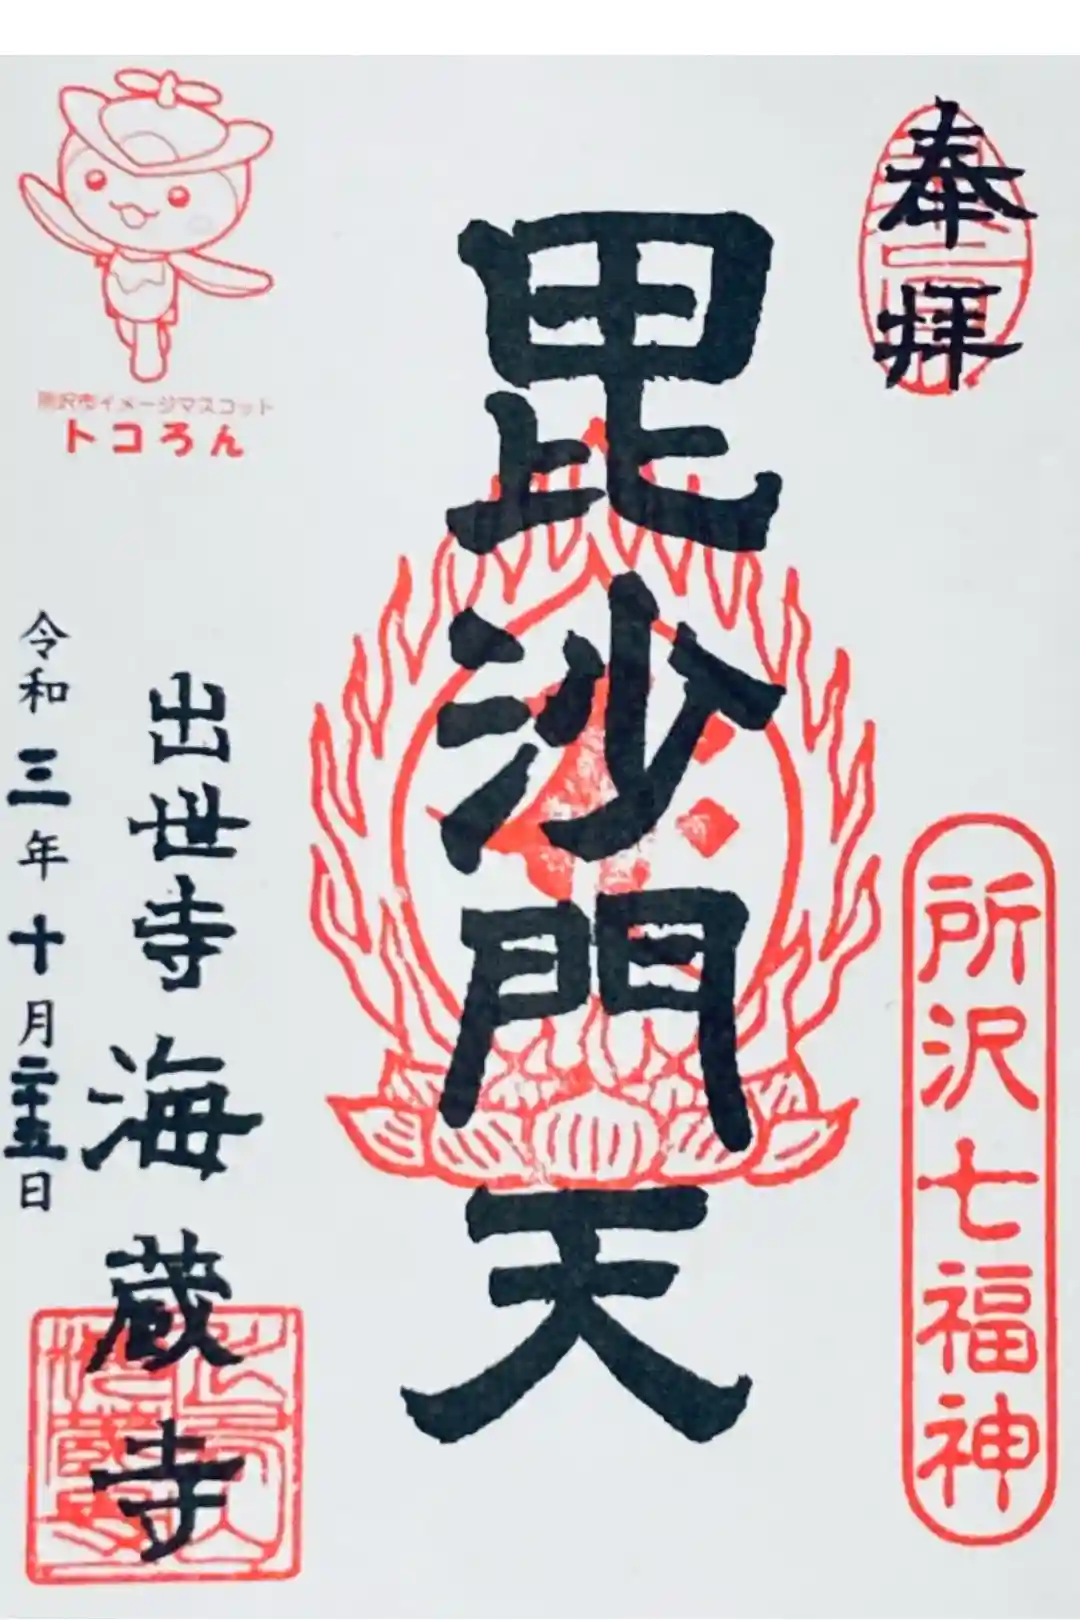 奉拝
所沢七福神
毘沙門天
所沢市イメージマスコット
トコろん
出世寺 海蔵寺
令和三年十月二十五日